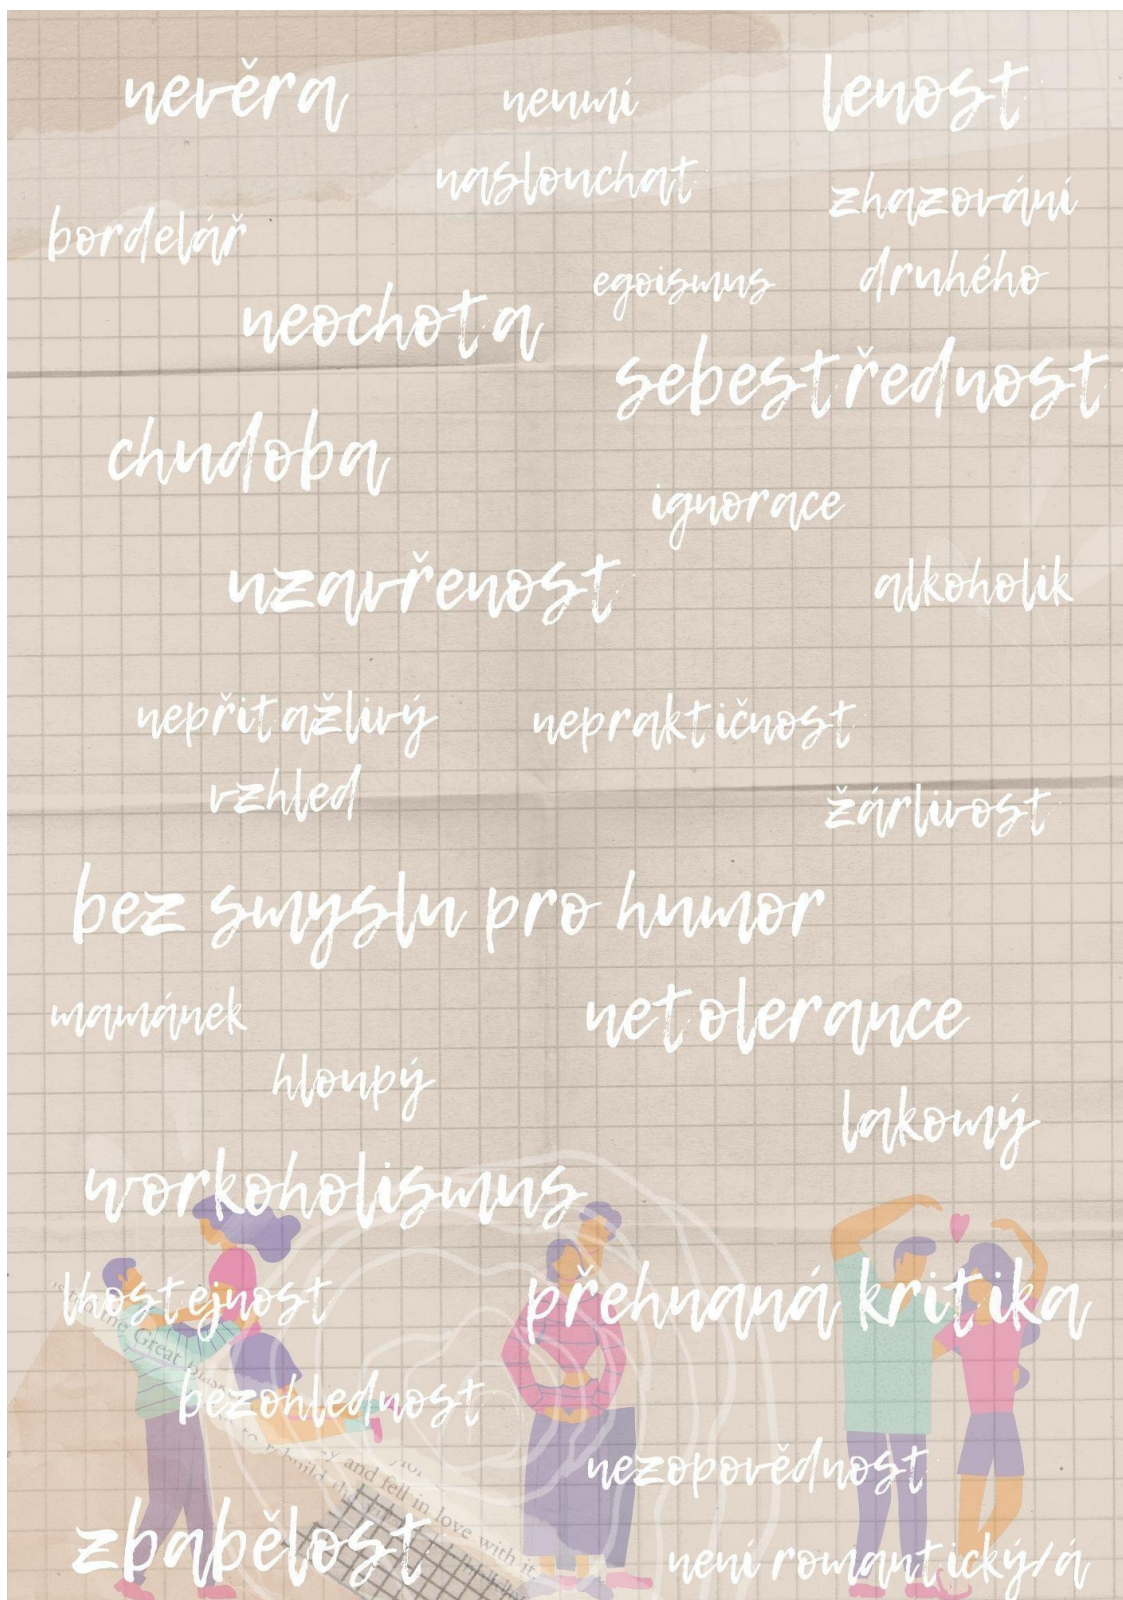 nevěra
neumí
naslouchat
lenost
zhazování
druhého
bordelář
egoismus
neochota
sebestřednost
chudoba
ignorace
uzavřenost
alkoholik
nepřitažlivý
vzhled
nepraktičnost
žárlivost
bez smyslu pro humor
mamánek
netolerance
hloupý
lakomý
workoholismus
lhostejnost
přehnaná kritika
bezohlednost
nezopovědnost
zbabělost
není romantický/á
Great
to rebuild
and fell in love with it.